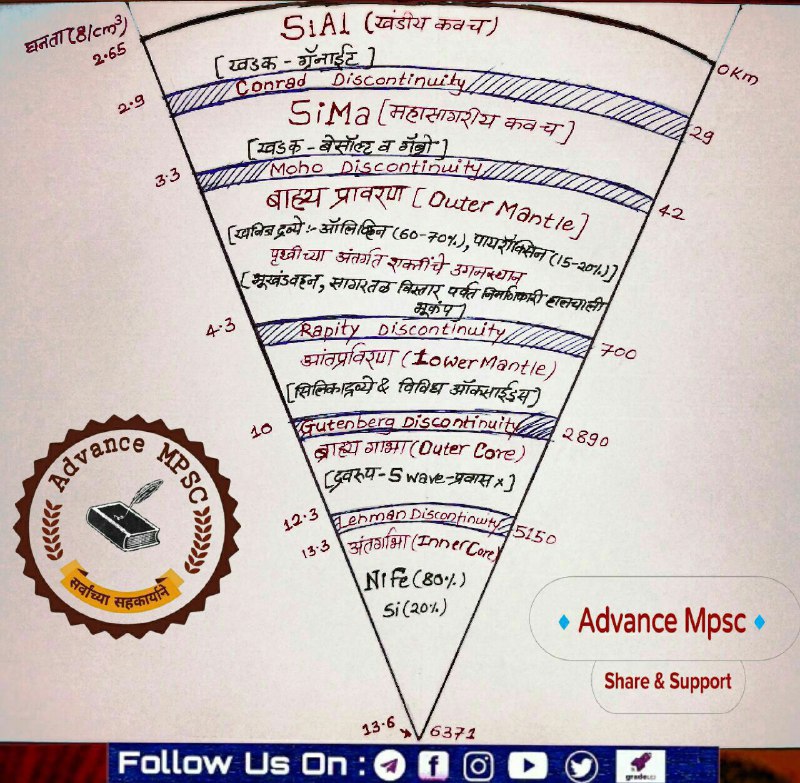 घनता (8/cm³)
2.65
SiAl (खंडीय कवच)
0Km
[खडक - ग्रॅनाईट]
Conrad Discontinuity
2.9
29
SiMa [महासागरीय कवच]
[खडक - बेसॉल्ट व गॅब्रो]
Moho Discontinuity
3.3
42
बाह्य प्रावरण [Outer Mantle]
[खनिजद्रव्ये :- ऑलिव्हिन (60-70%), पायरॉक्सिन (15-20%)]
पृथ्वीच्या अंतर्गत शक्तींचे उगमस्थान
[भूखंडवहन, सागरतळ विस्तार पर्वत निर्माणकारी हालचाली
भूकंप]
4.3
Rapity Discontinuity
700
आंतप्रावरण (Lower Mantle)
[सिलिकाद्रव्ये & विविध ऑक्साईड्स]
10
Gutenberg Discontinuity
2890
बाह्य गाभा (Outer Core)
[द्रवरूप - S wave - प्रवास x]
12.3
Lehman Discontinuity
5150
13.3
अंतर्गाभा (Inner Core)
NiFe (80%)
Si (20%)
13.6
6371
Advance MPSC
सर्वांच्या सहकार्याने
Advance Mpsc
Share & Support
Follow Us On :
gradeup